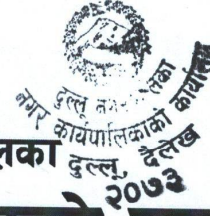 दुल्लु नगरपालिका
नगर कार्यपालिकाको कार्यालय
लिका
दुल्लु, दैलेख
२०७३